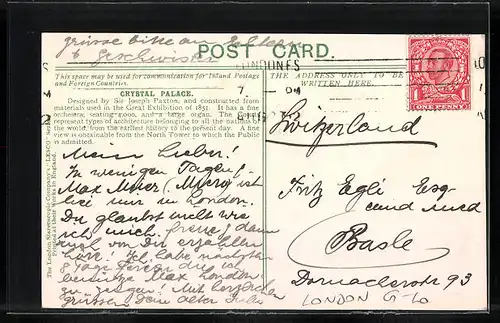 grüsse bitte an Eltern
& Geschwister
POST CARD.
This space may be used for communication for Inland Postage
and Foreign Countries.
THE ADDRESS ONLY TO BE
WRITTEN HERE.
CRYSTAL PALACE.
Designed by Sir Joseph Paxton, and constructed from
materials used in the Great Exhibition of 1851. It has a fine
orchestra, seating 4000, and a large organ. The
represent types of architecture belonging to all the nations of
the world, from the earliest history to the present day. A fine
view is obtainable from the North Tower to which the Public
is admitted.
The London Stereoscopic Company's "LESCO" Series
Printed at their Works in England.
LONDON
ONE PENNY
1
1
Switzerland
Fritz Egli Esq
cand med
Basle
Dornacherstr 93
LONDON
Mein Lieber!
In wenigen Tagen
Max Meier ist
bei mir in London.
Du glaubst nicht wie
ich mich freue! dann
viel von Dir erzählen
Ich habe nächstens
8 Tage Ferien
Max London
zu zeigen! Mit herzlichen
Grüssen, Dein alter